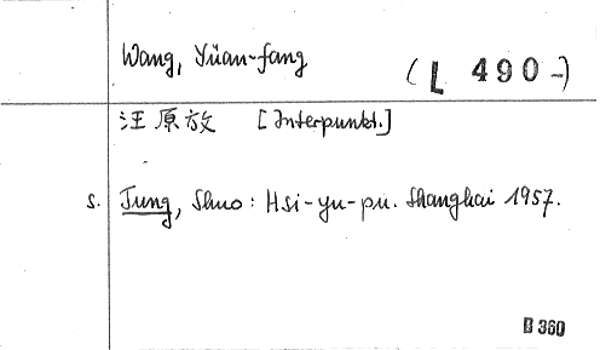 Wang, Yüan-fang
(L 490-)
汪原放 [Interpunkt.]
s. Tung, Shuo: Hsi-yu-pu. Shanghai 1957.
B 360